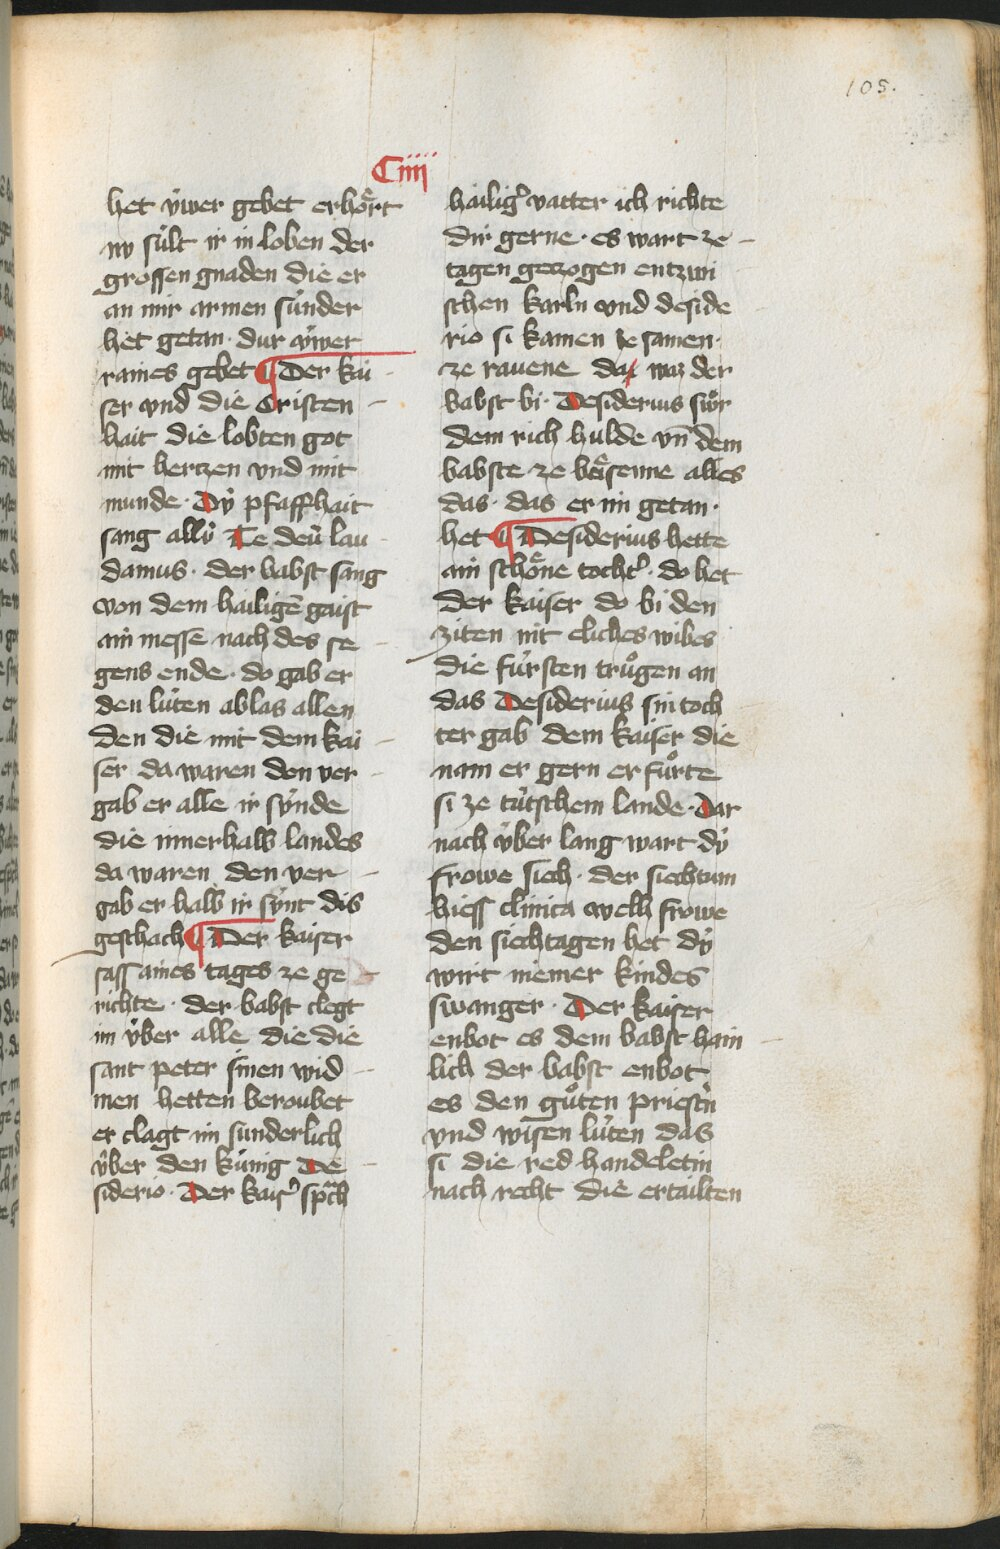 105.
Ciiii
het ẏwer gebet erhoͤrt
nv sùlt ir in loben der
grossen gnaden die er
an mir armen sùnder
het getan · dur ẏwer
raines gebet ¶ Der kai
ser vnd die Cristen
hait die lobten got
mit hertzen vnd mit
munde · Dẏ pfaffhait
sang allẏ Te deū lau
damus · der babst sang
von dem hailigē gaist
ain messe nach des se
gens ende · do gab er
den lùten ablas allen
den die mit dem kai
ser da waren den ver
gab er alle ir sẏnde
die innerhalb landes
da waren den ver
gab er halb ir sẏnt dis
geschach ¶ Der kaiser
sass aines tages ze ge
richte · der babst clegt
im ùber alle die die
sant peter sinen wid
men hetten beroubet
er clagt im sunderlich
ẏber den kùnig De
siderio · Der kais᾽ sprach
hailig᾽ vatter ich richte
dir gerne · es wart ze
tagen gezogen entzwi
schen karln vnd deside
rio si kamen ze samen ·
ze rauene da waz der
babst bi · Desiderius swoͤr
dem rich hulde vn̄ dem
babste ze beͣserne alles
das · das er im getan ·
het ¶ Desiderius hette
ain schoͤne tocht᾽ · do het
der kaiser do bi den
ziten nit eliches wibes
die fùrsten truͦgen an
das Desiderius sin toch
ter gab dem kaiser die
nam er gern er fuͦrte
si ze tùtschem lande · Dar
nach ẏber lang wart dẏ
frowe siech · der siechtum
hiess clinica welh frowe
den siechtagen het dẏ
wirt niemer kindes
swanger · Der kaiser
enbot es dem babst haim
lich der babst enbot
es den guͦten priestn̄
vnd wisen lùten das
si die red handeletin
nach recht die ertailten